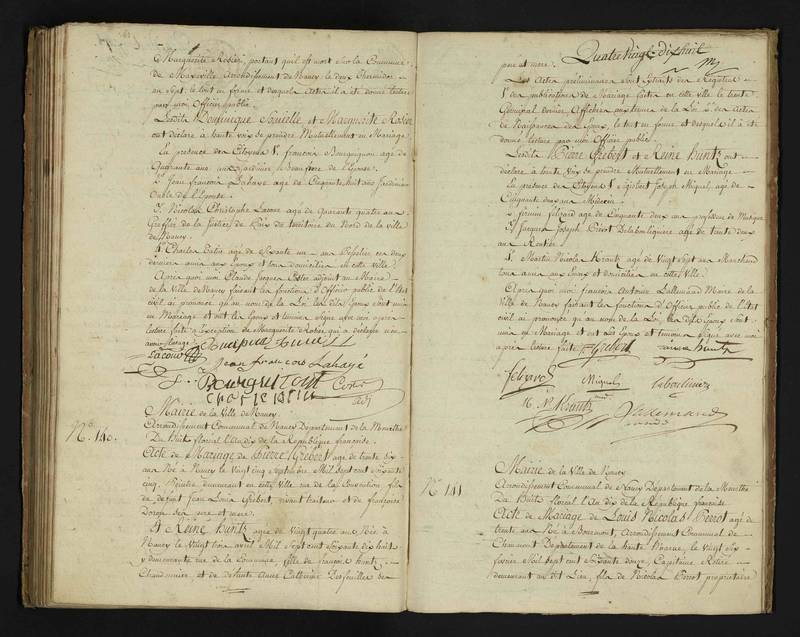 Marguerite Robée, portant qu'il est mort sur la Commune
de Maxeville arrondissement de Nancy le deux Thermidor
an Sept. le tout en forme et desquels actes il a été donné lecture
par moi Officier public.
Lesdits Dominique et Marguerite Robée
ont déclaré à haute voix se prendre Mutuellement en Mariage.
En présence des Citoyens 1. françois Bourguignon agé de
Quarante ans Jardinier Beaufrere de l'épouse.
2. Jean françois Lahaye agé de Cinquante huit ans Jardinier
Oncle de l'Epouse.
3. Nicolas Christophe Lacour agé de quarante quatre ans
Greffier de la Justice de Paix du territoire du Nord de la ville
de Nancy.
4. Charles agé de Soixante un ans ces deux
derniers amis aux Epoux et tous domiciliés en cette ville.
Après quoi moi Claude Jacques adjoint au Maire
de la Ville de Nancy faisant les fonctions d'Officier public de l'état
civil ai prononcé qu'au nom de la Loi lesdits Epoux sont unis
en Mariage et ont les Epoux et témoins Signé avec moi après
lecture faite à l'exception de Marguerite Robée qui a déclaré
Lacour
Jean françois Lahayé
Bourguignon
adj
No. 140.
Mairie de la Ville de Nancy.
Arrondissement Communal de Nancy Département de la Meurthe
Du huit floréal l'an dix de la République française.
Acte de Mariage de Pierre Grebert agé de trente six
ans Né à Nancy le vingt cinq Septembre Mil Sept cent Soixante
cinq demeurant en cette ville rue de la Constitution, fils
de défunt Jean Louis Grebert, vivant traiteur et de françoise
ses père et mere.
Et Reine Kuntz agée de vingt quatre ans Née à
Nancy le Vingt trois avril Mil Sept cent Soixante dix huit
y demeurante rue de la Commune, fille de françois Kuntz
Chaudronnier, et de défunte Anne Catherine Desfeuilles ses
Quatre vingt dix huit
père et mere.
Les Actes préliminaires sont Extraits des Registres
1. des publications de Mariage faites en cette ville le trente
Germinal dernier, affichées aux termes de la Loi. 2. des Actes
de Naissances des Epoux, le tout en forme et desquels il a été
donné lecture par moi Officier public.
Lesdits Pierre Grebert et Reine Kuntz ont
déclaré à haute voix se prendre Mutuellement en Mariage
En présence des Citoyens 1. Sigisbert Joseph Miguel, agé de
Cinquante deux ans Médecin.
2. firmin felizard agé de Cinquante deux ans professeur de Musique
3. Jacques Joseph Delabouliniere agé de trente deux
ans Rentier.
4. Martin Nicolas Krantz agé de Vingt sept ans Marchand
tous amis aux Epoux et domiciliés en cette Ville.
Après quoi moi françois Antoine Lallemand Maire de la
Ville de Nancy faisant les fonctions d'Officier public de l'état
civil ai prononcé qu'au nom de la Loi lesdits Epoux sont
unis en Mariage et ont les Epoux et témoins Signé avec moi
après lecture faite. Grebert reine Kuntz
Miguel
M. N. Krantz
Lallemand
No. 141
Mairie de la Ville de Nancy
Arrondissement Communal de Nancy Département de la Meurthe
Du huit floréal l'an dix de la République française
Acte de Mariage de Louis Nicolas Pierrot agé de
trente ans Né à Arrondissement Communal de
Chaumont Département de la haute Marne, le vingt six
février Mil Sept cent Soixante douze, Capitaine Retiré
demeurant au dit Lieu, fils de Nicolas Pierrot propriétaire